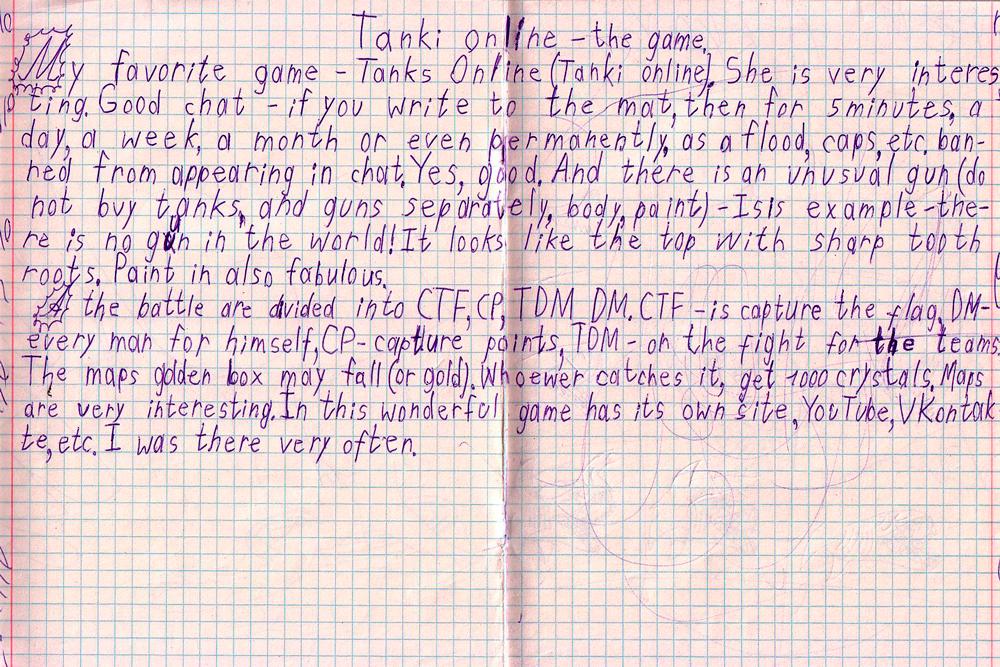 Tanki online - the game.
My favorite game - Tanks Online (Tanki online). She is very interes
ting. Good chat - if you write to the mat, then for 5 minutes, a
day, a week, a month or even permanently, as a flood, caps, etc. ban-
ned from appearing in chat. Yes, good. And there is an unusual gun (do
not buy tanks, and guns separately, body, paint) - Isis example - the-
re is no gun in the world! It looks like the top with sharp tooth
roots. Paint in also fabulous.
A the battle are divided into CTF, CP, TDM, DM. CTF - is capture the flag, DM-
every man for himself, CP - capture points, TDM - on the fight for the teams
The maps golden box may fall (or gold). Whoewer catches it, get 1000 crystals. Maps
are very interesting. In this wonderful game has its own site, YouTube, VKontak
te, etc. I was there very often.